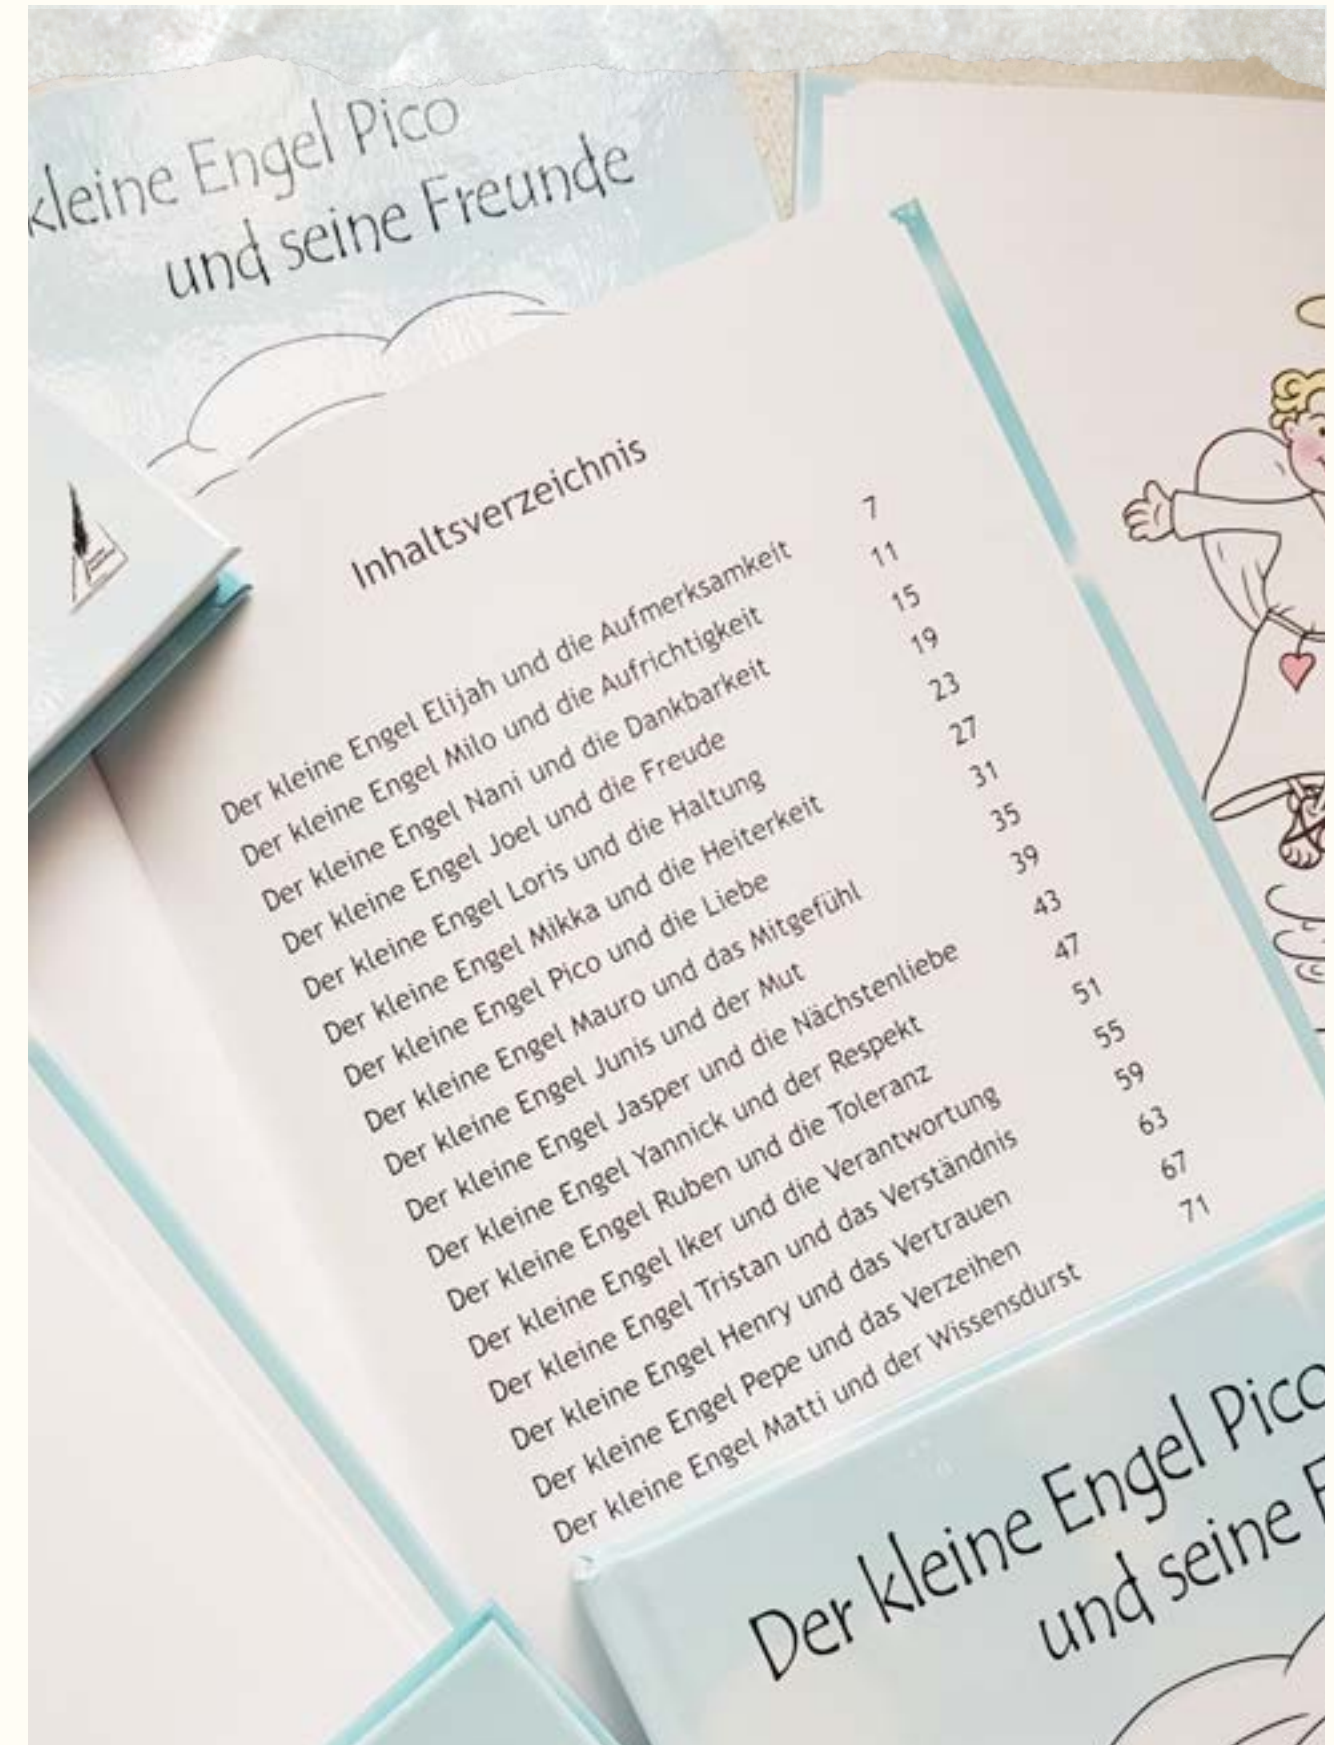 kleine Engel Pico
und seine Freunde
Inhaltsverzeichnis
Der kleine Engel Elijah und die Aufmerksamkeit 7
Der kleine Engel Milo und die Aufrichtigkeit 11
Der kleine Engel Nani und die Dankbarkeit 15
Der kleine Engel Joel und die Freude 19
Der kleine Engel Loris und die Haltung 23
Der kleine Engel Mikka und die Heiterkeit 27
Der kleine Engel Pico und die Liebe 31
Der kleine Engel Mauro und das Mitgefühl 35
Der kleine Engel Junis und der Mut 39
Der kleine Engel Jasper und die Nächstenliebe 43
Der kleine Engel Yannick und der Respekt 47
Der kleine Engel Ruben und die Toleranz 51
Der kleine Engel Iker und die Verantwortung 55
Der kleine Engel Tristan und das Verständnis 59
Der kleine Engel Henry und das Vertrauen 63
Der kleine Engel Pepe und das Verzeihen 67
Der kleine Engel Matti und der Wissensdurst 71
Der kleine Engel Pico
und seine F